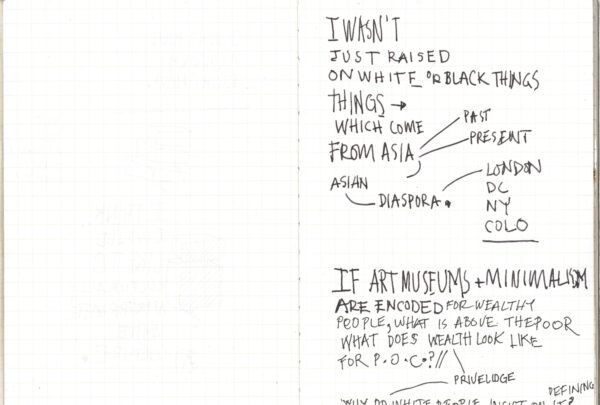 I WASN'T
JUST RAISED
ON WHITE OR BLACK THINGS
THINGS →
WHICH COME
FROM ASIA
PAST
PRESENT
ASIAN
DIASPORA
LONDON
DC
NY
COLO
IF ART MUSEUMS + MINIMALISM
ARE ENCODED FOR WEALTHY
PEOPLE, WHAT IS ABOVE THE POOR
WHAT DOES WEALTH LOOK LIKE
FOR P.O.C.?//
PRIVELIDGE
DEFINING
WHY DO WHITE PEOPLE INSIST ON IT?